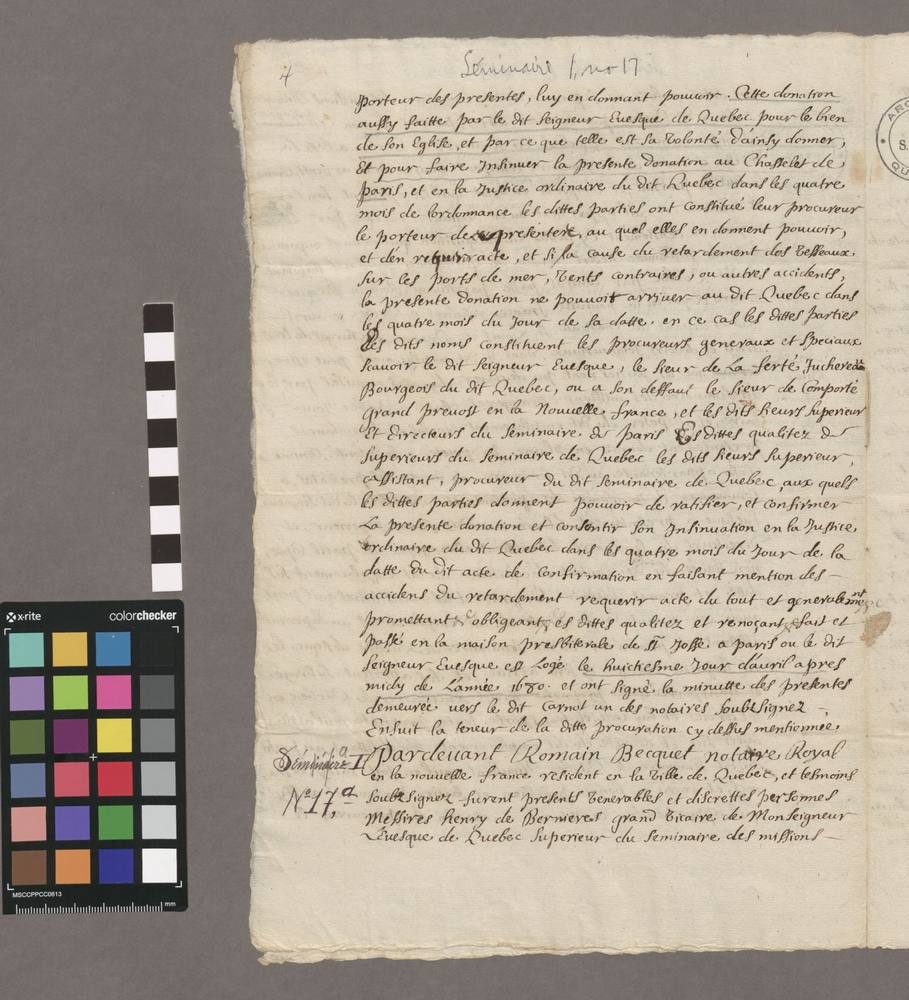 4
Séminaire 1, no 17
porteur des presentes, luy en donnant pouuoir. Cette donation
aussy faitte par le dit Seigneur Euesque de Quebec pour le bien
de son Eglise, et par ce que telle est sa volonté d'ainsy donner,
Et pour faire Insinuer la presente donation au Chastelet de
Paris, et en la Justice ordinaire du dit Quebec dans les quatre
mois de lordonnance les dittes parties ont constitué leur procureur
le porteur des presentes, au quel elles en donnent pouuoir,
et d'en requerir acte, et si la cause du retardement des vesseaux
sur les ports de mer, vents contraires, ou autres accidents,
la presente donation ne pouuoit arriuer au dit Quebec dans
les quatre mois du Jour de sa datte. en ce cas les dittes parties
Es dits noms constituent les procureurs generaux et speciaux
scauoir le dit Seigneur Euesque, le sieur de La ferté Juchereau
Bourgeois du dit Quebec, ou a son deffaut le sieur de Comporté
grand preuost en la Nouuelle france, et les dits sieurs superieur
Et directeurs du seminaire de Paris Es dittes qualitez de
superieurs du seminaire de Quebec les dits sieurs superieur,
assistant, procureur du dit seminaire de Quebec, aux quels
les dittes parties donnent pouuoir de ratifier, et confirmer
La presente donation et consentir son Insinuation en la Justice
ordinaire du dit Quebec dans les quatre mois du Jour de la
datte du dit acte de confirmation en faisant mention des
accidens du retardement requerir acte du tout et generalement
promettant & obligeant es dittes qualitez et renoçant fait et
passé en la maison presbiterale de St Josse a paris ou le dit
seigneur Euesque est Logé le huictiesme Jour d'auril apres
midy de L'année 1680. et ont signé la minutte des presentes
demeurée vers le dit Carnot un des notaires soubsignez.
Ensuit la teneur de la ditte procuration cy dessus mentionnée
Séminaire I
Pardeuant Romain Becquet notaire Royal
en la nouuelle france resident en la ville de Quebec, et tesmoins
No 17, a
soubsignez furent presents venerables et discrettes personnes
Messires henry de Bernieres grand vicaire de Monseigneur
L'euesque de Quebec superieur du seminaire des missions
x-rite
colorchecker
MSCCPPCC0613
mm